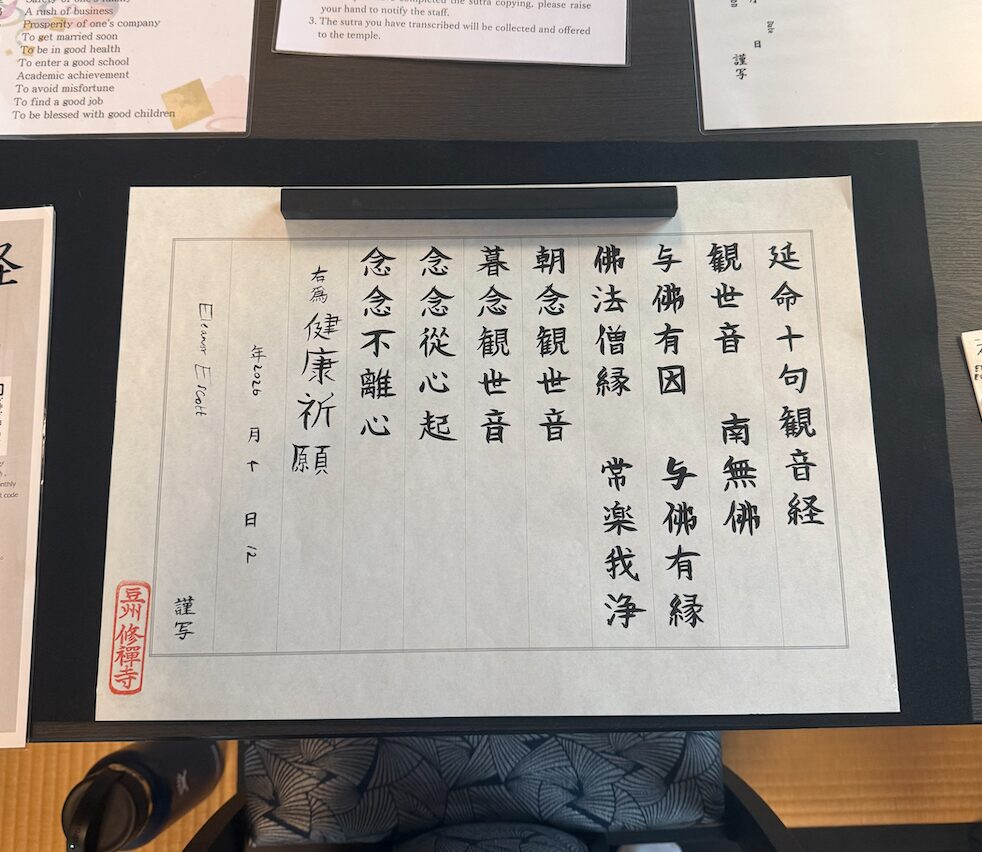 A rush of business
Prosperity of one's company
To get married soon
To be in good health
To enter a good school
Academic achievement
To avoid misfortune
To find a good job
To be blessed with good children
completed the sutra copying, please raise
your hand to notify the staff.
3. The sutra you have transcribed will be collected and offered
to the temple.
日
謹写
経
延命十句観音経
観世音 南無佛
与佛有因 与佛有縁
佛法僧縁 常楽我浄
朝念観世音
暮念観世音
念念從心起
念念不離心
右為健康祈願
年2026 月 日12
Eleanor
謹写
豆州修禅寺